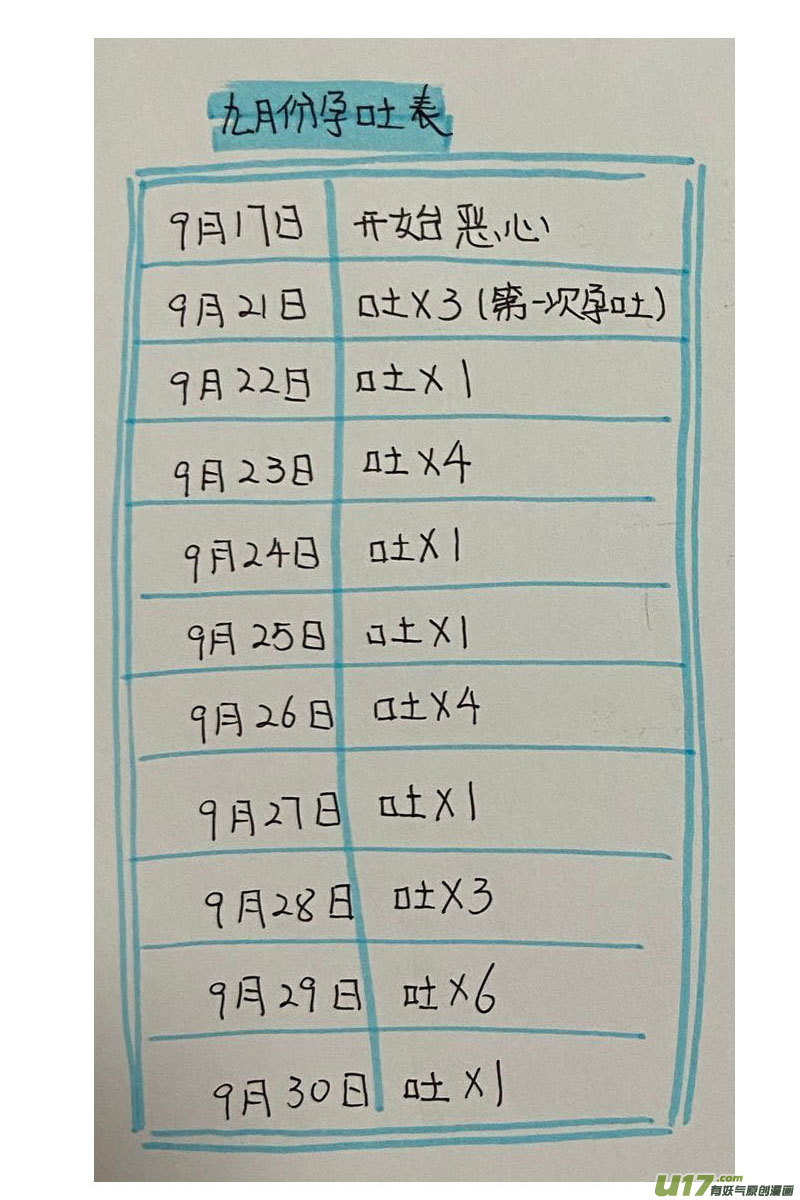 九月份孕吐表
9月17日 开始恶心
9月21日 吐X3(第一次孕吐)
9月22日 吐X1
9月23日 吐X4
9月24日 吐X1
9月25日 吐X1
9月26日 吐X4
9月27日 吐X1
9月28日 吐X3
9月29日 吐X6
9月30日 吐X1
U17.com
有妖气原创漫画